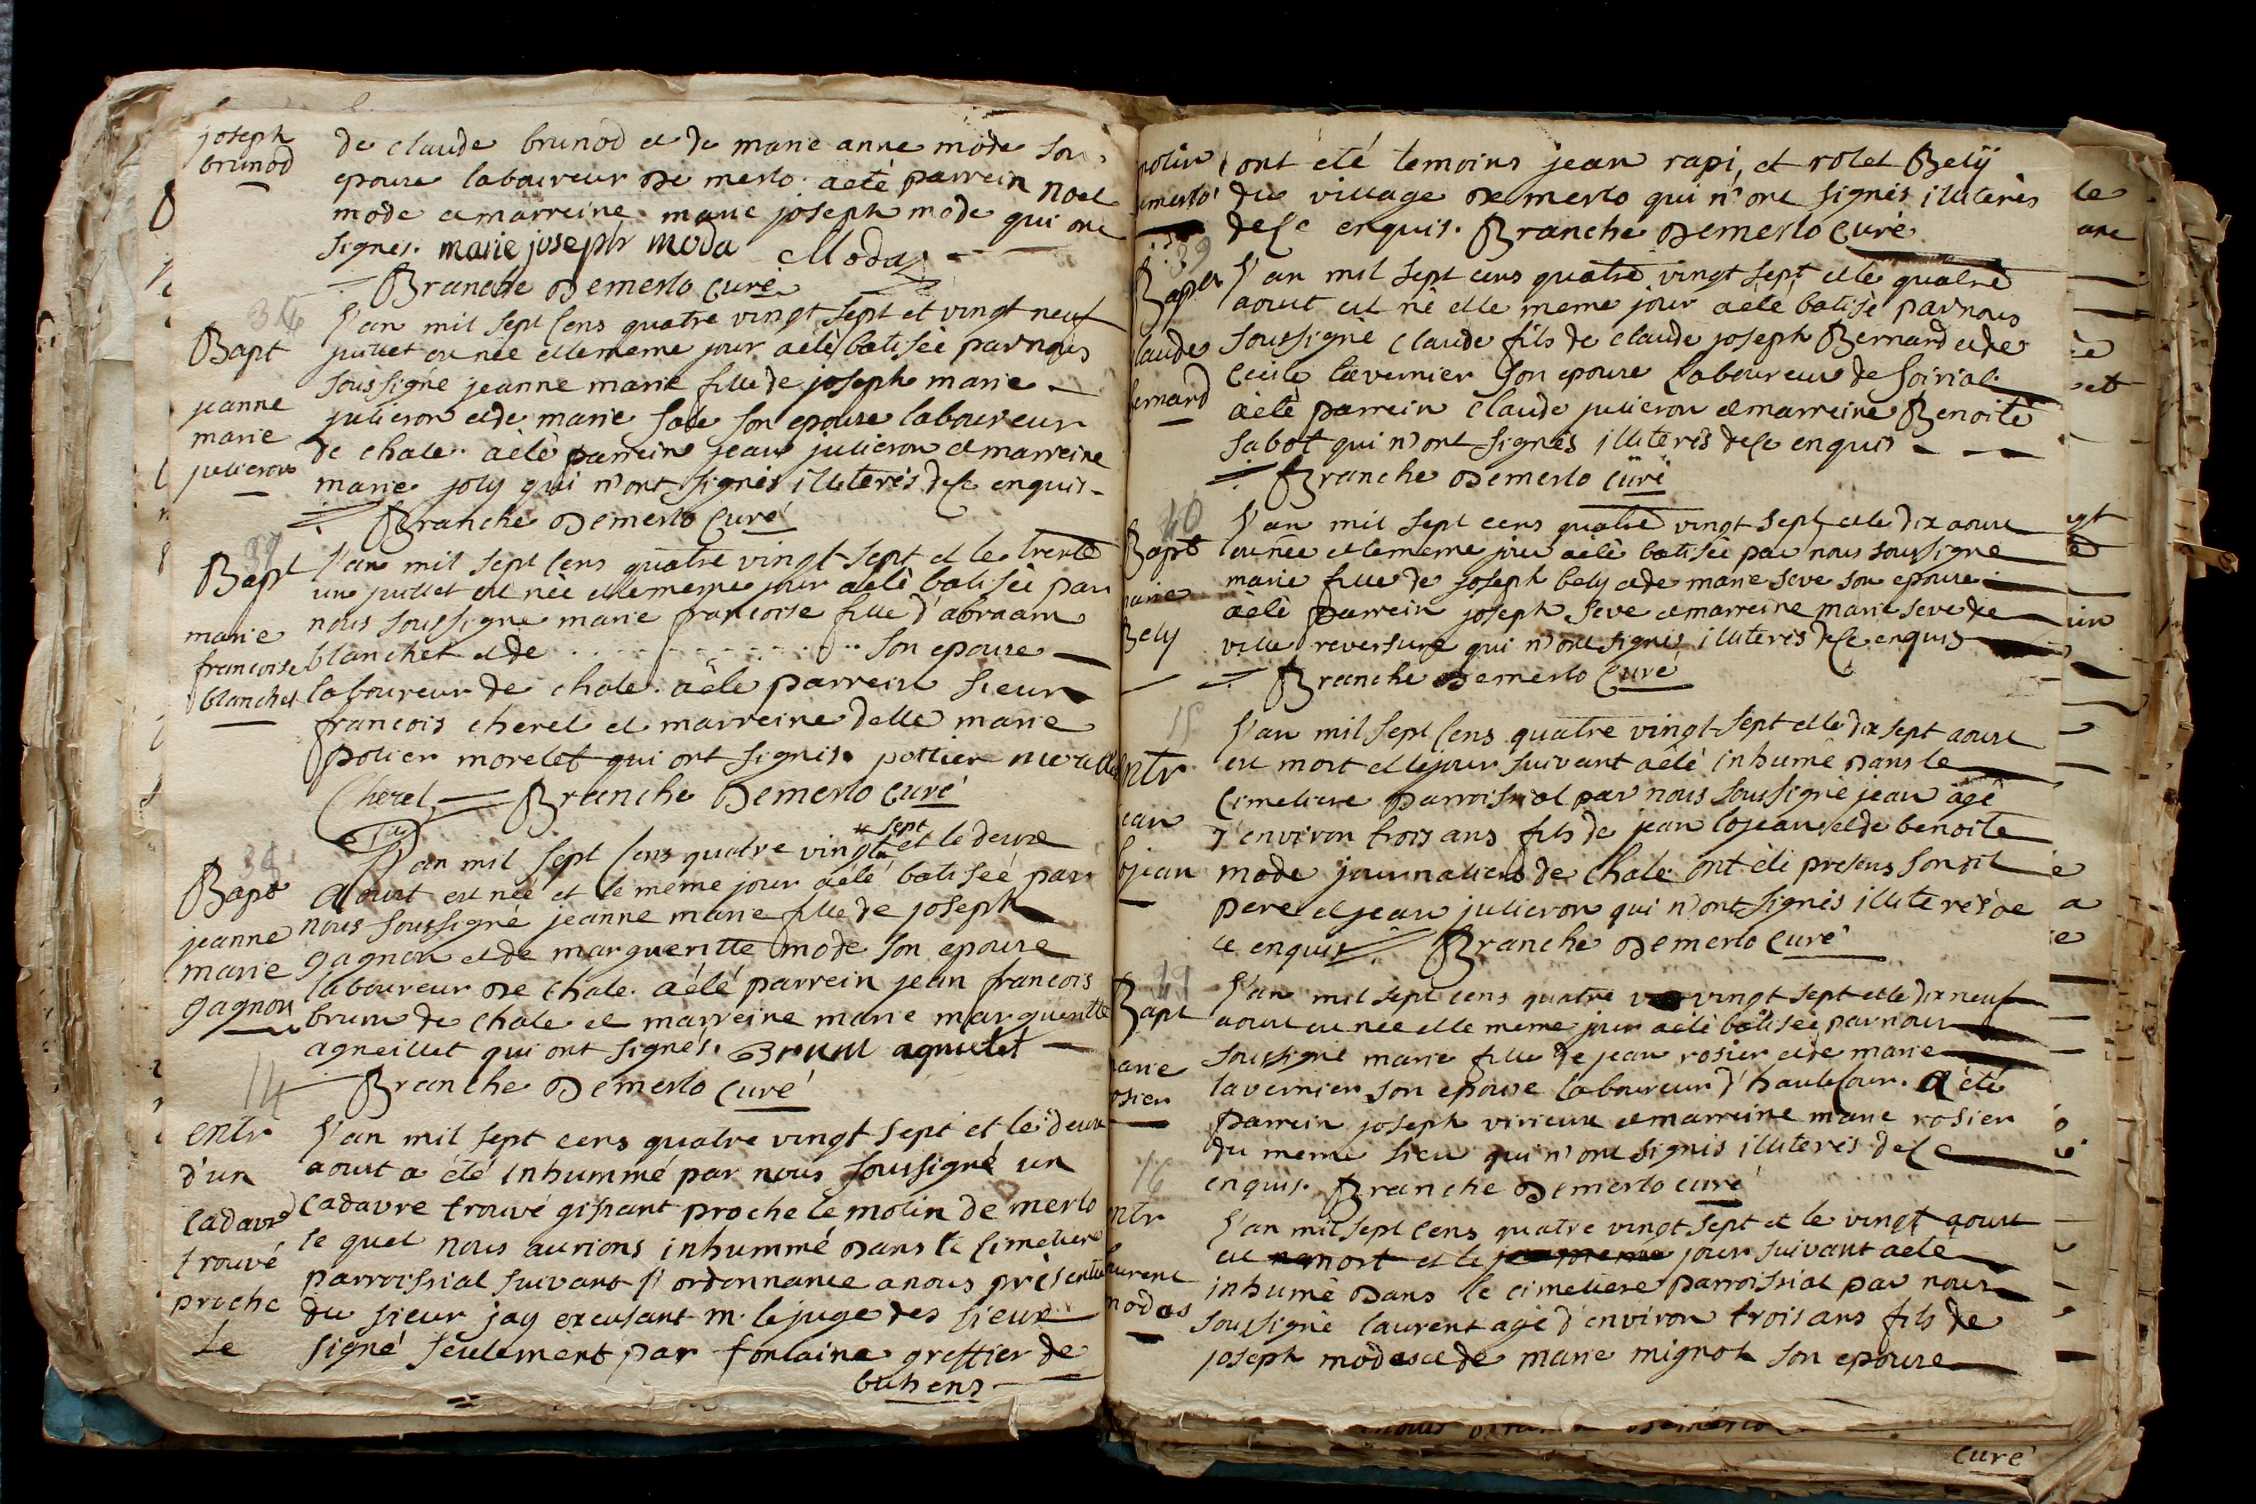 joseph
brunod
de claude brunod et de marie anne mode son
epouse laboureur de merlo. aeté parrein noel
mode et marreine marie joseph mode qui ont
signes. marie joseph moda Moda
Branche Demerlo curé
36
Bapt
jeanne
marie
julieron
l'an mil sept cens quatre vingt sept et vingt neuf
juillet est née et le meme jour aété batisée par nous
soussigné jeanne marie fille de joseph marie
julieron et de marie sale son epouse laboureur
de chale. aété parrein jean julieron et marreine
marie joly qui n'ont signés illiterés de ce enquis
Branche Demerlo curé
37
Bapt
marie
francoise
blanchet
l'an mil sept cens quatre vingt sept et le trente
un juillet est née et le meme jour aété batisée par
nous soussigné marie francoise fille d'abraam
blanchet et de . . . . . . . . . . son epouse
laboureur de chale. aété parrein sieur
francois cherel et marreine delle marie
potier morelet qui ont signés. pottier
Cherel Branche Demerlo curé
38
Bapt
jeanne
marie
gagnon
sept
l'an mil sept cens quatre vingt et le deuxe
aoust est née et le meme jour aété batiseé par
nous soussigné jeanne marie fille de joseph
gagnon et de margueritte mode son epouse
laboureur de chale. aété parrein jean francois
brum de chale et marreine marie margueritte
agneillet qui ont signés. Brum agnielet
Branche Demerlo curé
14
entr
d'un
cadavre
trouvé
proche
le
l'an mil sept cens quatre vingt sept et le deuxe
aoust a été inhummé par nous soussigné un
cadavre trouvé gissant proche le molin de merlo
le quel nous aurions inhummé dans le cimetiere
parroissial suivant l'ordonnance a nous présentée
du sieur jay excusant m. le juge des lieux
signé seulement par fontaine greffier de
buhens
molin
demerlo
ont été temoins jean rapi, et rolet Belÿ
du village de merlo qui n'ont signés illiterés
de ce enquis. Branche Demerlo curé
39
Bapt
claude
bernard
l'an mil sept cens quatre vingt sept et le quatre
aoust est né et le meme jour aété batisé par nous
soussigné claude fils de claude joseph Bernard et de
cecile tavernier son epouse laboureur de soirial.
aété parrein claude julieron et marreine Benoite
sabot qui n'ont signés illiterés de ce enquis
Branche Demerlo curé
40
Bapt
marie
Bely
l'an mil sept cens quatre vingt sept et le dix aoust
est née et le meme jour aété batisée par nous soussigné
marie fille de joseph bely et de marie seve son epouse
aété parrein joseph seve et marreine marie seve de
ville reversure qui n'ont signés illiterés de ce enquis
Branche Demerlo curé
15
entr
jean
lojean
l'an mil sept cens quatre vingt sept et le dix sept aoust
est mort et le jour suivant aété inhumé dans le
cimetiere parroissial par nous soussigné jean agé
d'environ trois ans fils de jean lojean et de benoite
mode journaliers de chale. ont été presens son dit
pere et jean julieron qui n'ont signés illiterés de
ce enquis Branche Demerlo curé
41
Bapt
marie
rosier
l'an mil sept cens quatre vingt sept et le dix neuf
aoust est née et le meme jour aété batisée par nous
soussigné marie fille de jean rosier et de marie
tavernier son epouse laboureur d'hautecour. a été
parrein joseph virieux et marreine marie rosier
du meme lieu qui n'ont signés illiterés de ce
enquis. Branche Demerlo curé
16
entr
laurent
modas
l'an mil sept cens quatre vingt sept et le vingt aoust
est mort et le jour suivant aété
inhumé dans le cimetiere parroissial par nous
soussigné laurent agé d'environ trois ans fils de
joseph modas et de marie mignot son epouse
curé